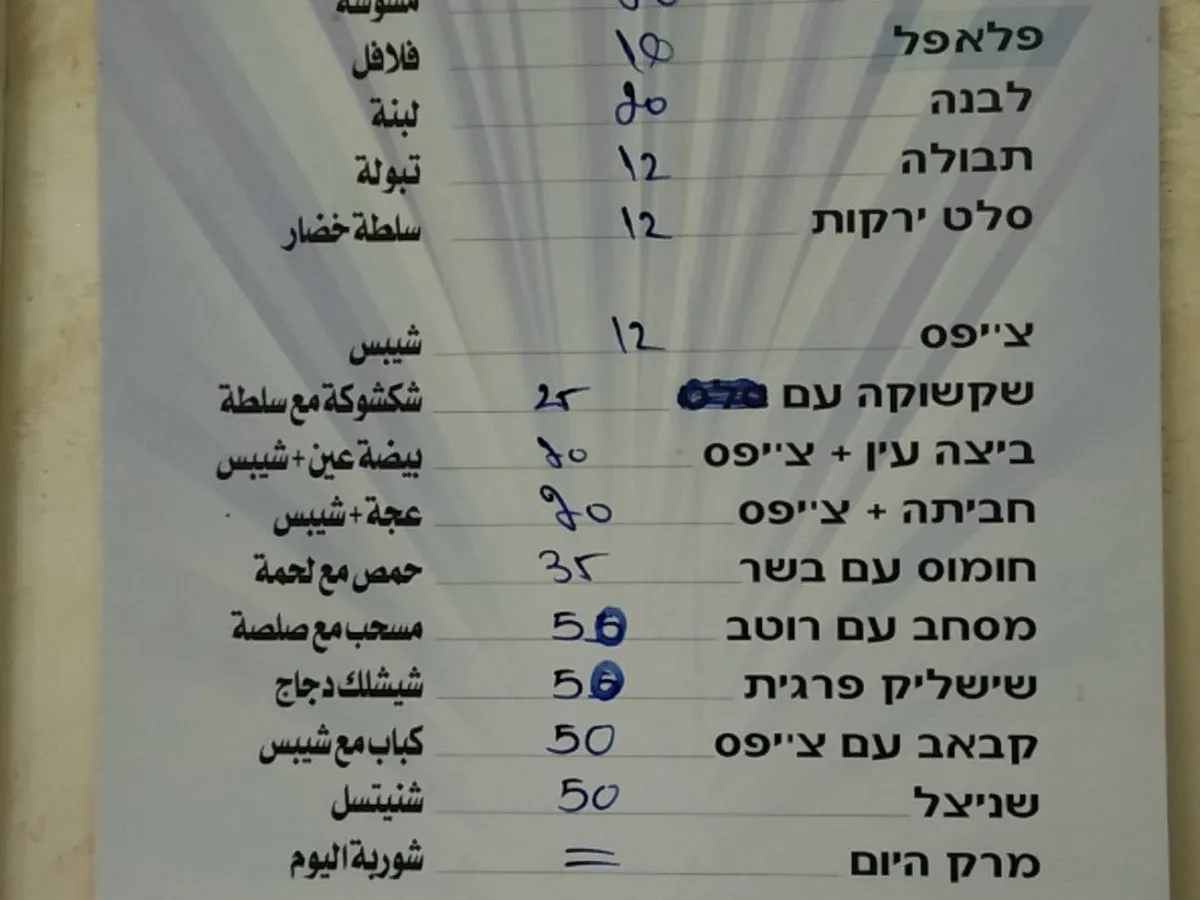 فلافل 10 פלאפל
لبنة 20 לבנה
تبولة 12 תבולה
سلطة خضار 12 סלט ירקות
شيبس 12 צ'יפס
شكشوكة مع سلطة 25 שקשוקה עם
بيضة عين + شيبس 20 ביצה עין + צ'יפס
عجة + شيبس 20 חביתה + צ'יפס
حمص مع لحمة 35 חומוס עם בשר
مسحب مع صلصة מסחב עם רוטב
شيشلك دجاج שישליק פרגית
كباب مع شيبس 50 קבאב עם צ'יפס
شنيتسل 50 שניצל
شوربة اليوم = מרק היום